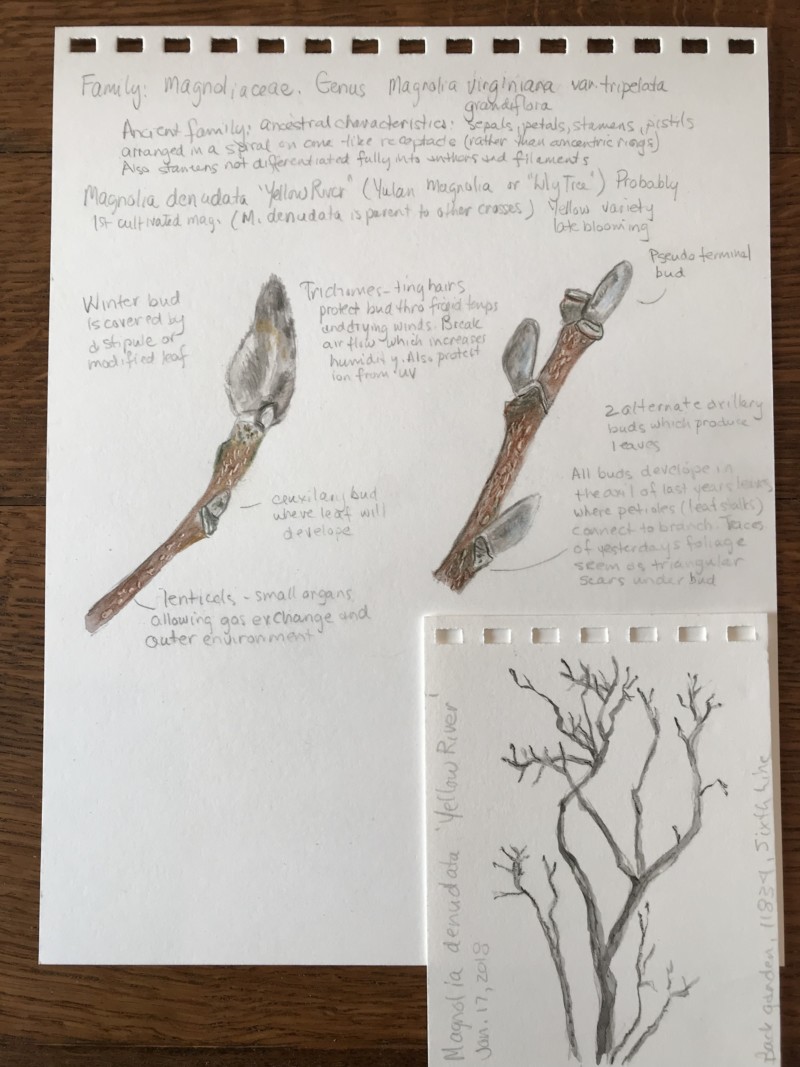 Family: Magnoliaceae. Genus Magnolia virginiana var. tripelata
grandiflora
Ancient family: ancestral characteristics: sepals, petals, stamens, pistils
arranged in a spiral on cone-like receptacle (rather than concentric rings)
Also stamens not differentiated fully into anthers and filaments
Magnolia denudata 'Yellow River' (Yulan Magnolia or "Lily Tree") Probably
1st cultivated mag. (M. denudata is parent to other crosses) Yellow variety
late blooming
Pseudo terminal
bud
Winter bud
is covered by
stipule or
modified leaf
Trichomes - tiny hairs
protect bud thro frigid temps
and drying winds. Break
air flow which increases
humidity. Also protect
from UV
2 alternate axillary
buds which produce
leaves
All buds develope in
the axil of last years leaves
where petioles (leaf stalks)
connect to branch. Traces
of yesterdays foliage
seem as triangular
scars under bud
bud
where leaf will
develope
lenticels - small organs
allowing gas exchange and
outer environment
Magnolia denudata 'Yellow River'
Jan. 17, 2018
Back garden, 11839, Sixth Line